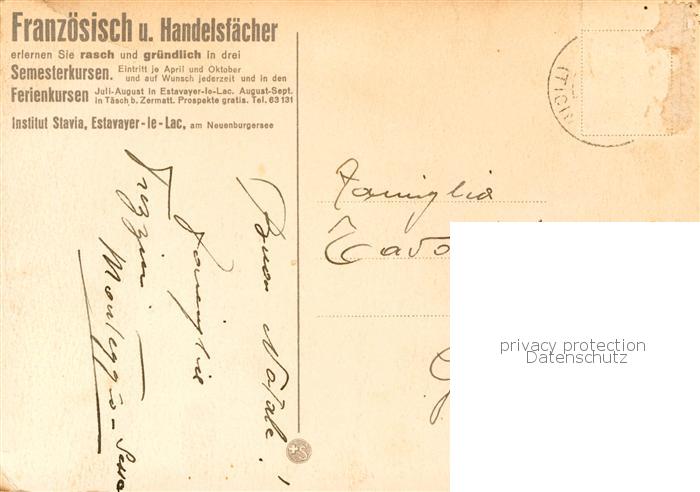 Französisch u. Handelsfächer
erlernen Sie rasch und gründlich in drei
Semesterkursen. Eintritt je April und Oktober
und auf Wunsch jederzeit und in den
Ferienkursen Juli-August in Estavayer-le-Lac. August-Sept.
in Täsch b. Zermatt. Prospekte gratis. Tel. 63 131
Institut Stavia, Estavayer-le-Lac, am Neuenburgersee
Buon Natale!
Famiglia
Trezzini
Monteggio-Sessa
Famiglia
privacy protection
Datenschutz